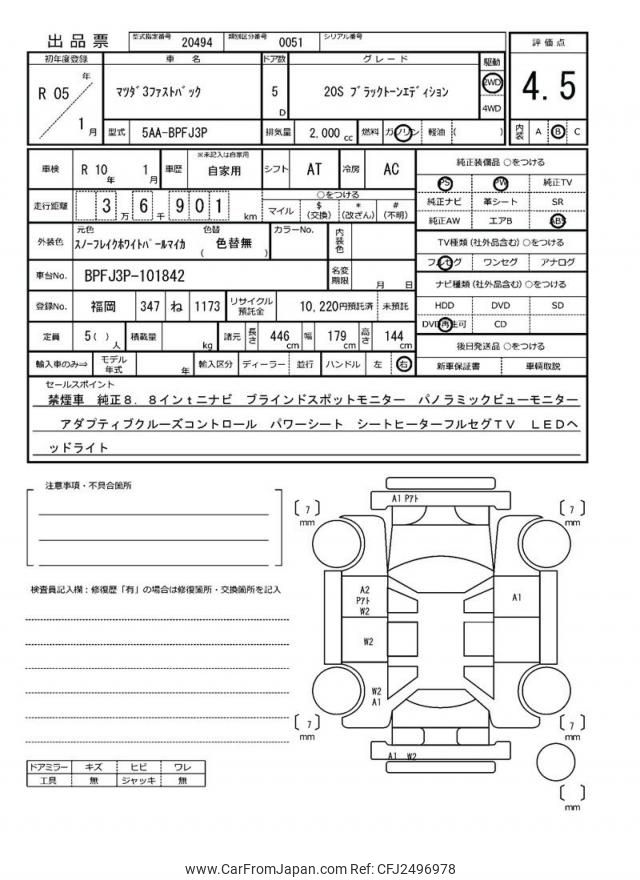 出品票
型式指定番号 20494 類別区分番号 0051 シリアル番号
初年度登録 車名 ドア数 グレード 駆動 評価点
R 05 年 1 月
マツダ3ファストバック 5 D 20S ブラックトーンエディション 2WD 4WD 4.5
型式 5AA-BPFJ3P 排気量 2,000 cc 燃料 ガソリン 軽油 ( ) 内装 A B C
車検 R 10 年 1 月 車歴 ※未記入は自家用 自家用 シフト AT 冷房 AC
走行距離 3 万 6 千 9 0 1 km ○をつける マイル $ (交換) * (改ざん) # (不明)
外装色 元色 スノーフレイクホワイトパールマイカ 色替 ( 色替無 ) カラーNo. 内装色
車台No. BPFJ3P-101842 名変期限 月 日
登録No. 福岡 347 ね 1173 リサイクル預託金 10,220円預託済 未預託
定員 5( ) 人 積載量 kg 諸元 長さ 446 cm 幅 179 cm 高さ 144 cm
輸入車のみ⇒ モデル年式 年 輸入区分 ディーラー 並行 ハンドル 左 右
純正装備品 ○をつける
PS PW 純正TV
純正ナビ 革シート SR
純正AW エアB ABS
TV種類 (社外品含む) ○をつける
フルセグ ワンセグ アナログ
ナビ種類 (社外品含む) ○をつける
HDD DVD SD
DVD再生可 CD
後日発送品 ○をつける
新車保証書 車輌取説
セールスポイント
禁煙車 純正8．8インtニナビ ブラインドスポットモニター パノラミックビューモニター
アダプティブクルーズコントロール パワーシート シートヒーターフルセグTV LEDヘ
ッドライト
注意事項・不具合箇所
検査員記入欄：修復歴「有」の場合は修復箇所・交換箇所を記入
ドアミラー キズ ヒビ ワレ
工具 無 ジャッキ 無
A1 Pアト
[ 7 ] mm
[ 7 ] mm
A2
Pアト
W2
A1
W2
W2
A1
[ 7 ] mm
[ 7 ] mm
A1 W2
[ ] mm
www.CarFromJapan.com Ref: CFJ2496978